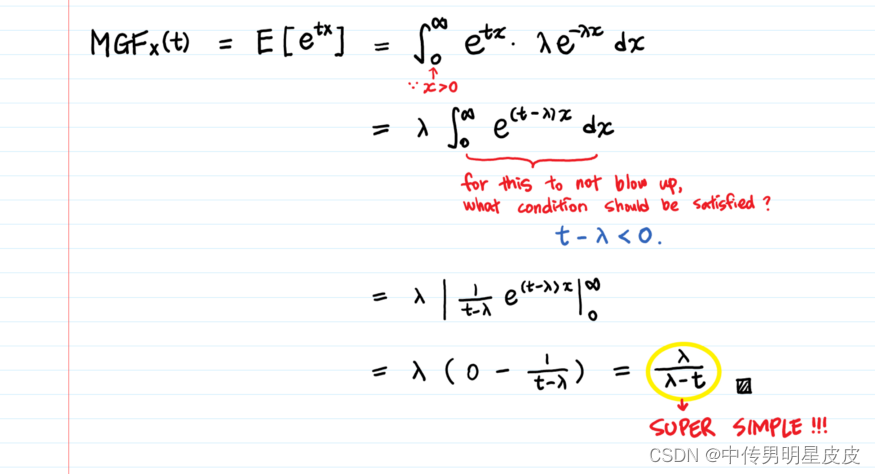 MGFx(t) = E[e^{tx}] = ∫₀^∞ e^{tx} · λe^{-λx} dx
↑
∵ x>0
= λ ∫₀^∞ e^{(t-λ)x} dx
for this to not blow up,
what condition should be satisfied?
t - λ < 0.
= λ | 1/(t-λ) e^{(t-λ)x} |₀^∞
= λ ( 0 - 1/(t-λ) ) = λ/(λ-t) ▨
↓
SUPER SIMPLE!!!
CSDN @中传男明星皮皮